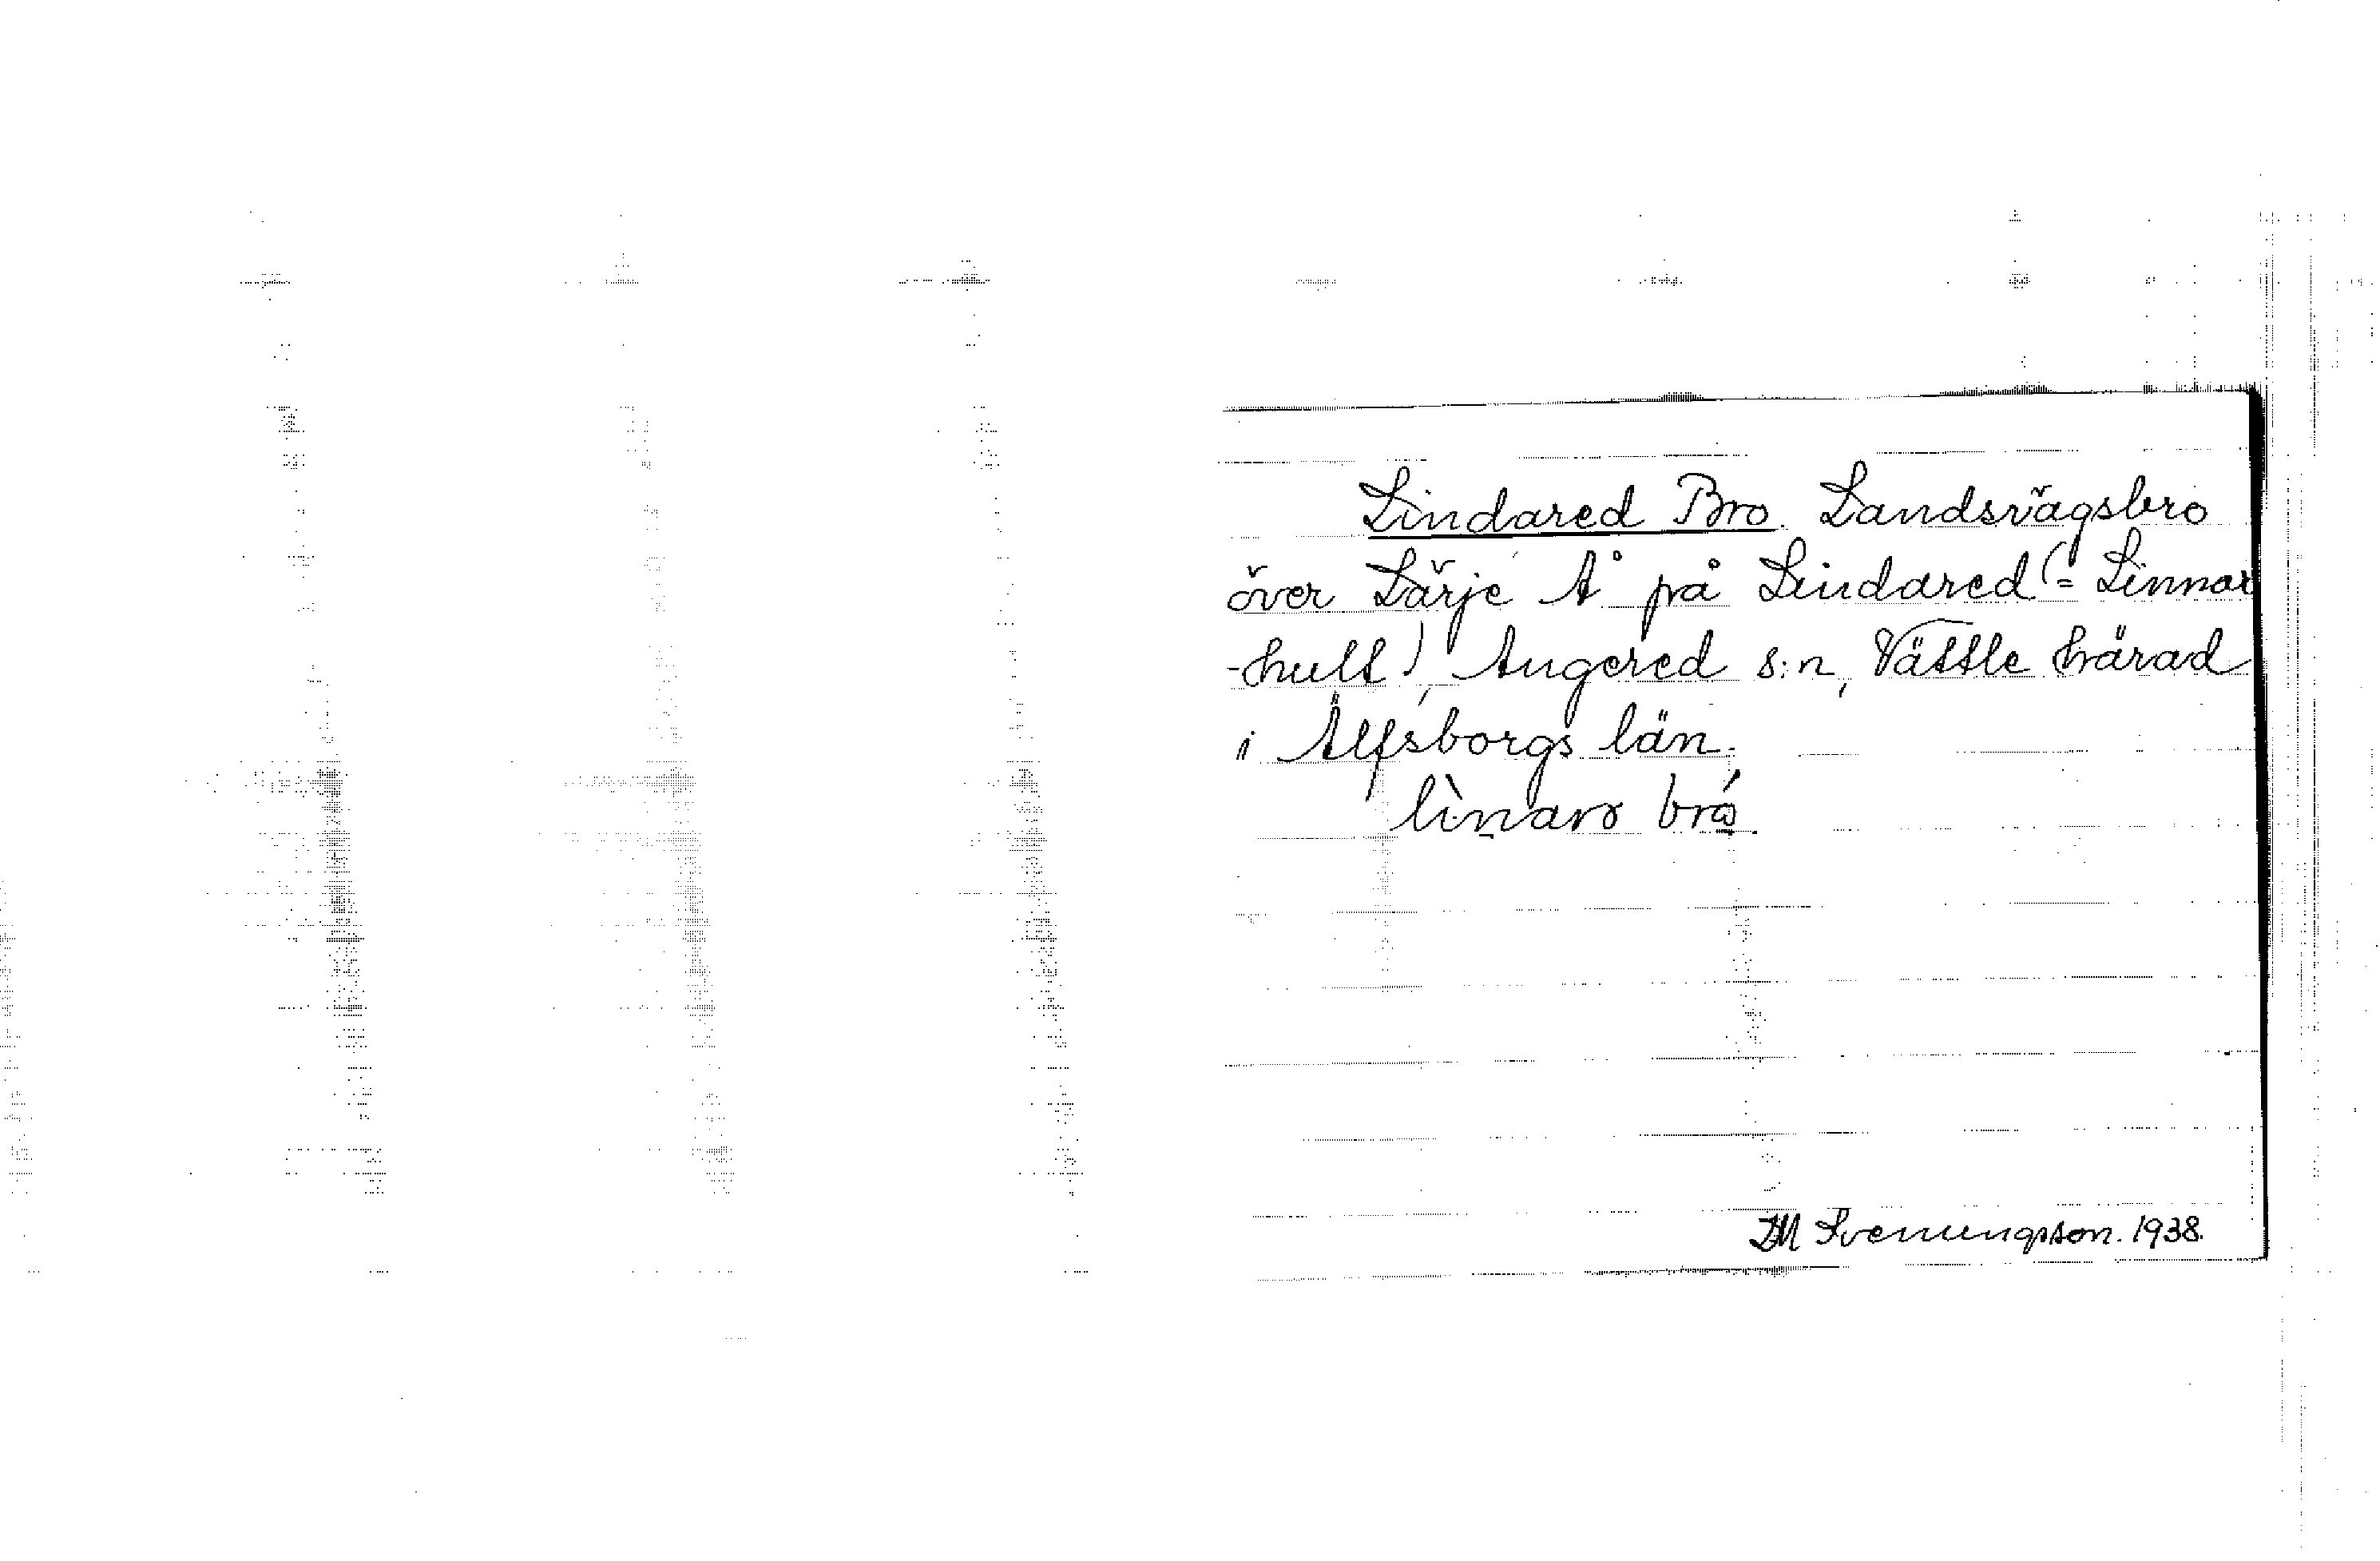 Lindared Bro. Landsvägsbro
över Lärje Å på Lindared (= Linnar
-hult), Angered s:n, Vättle härad
i Älfsborgs län.
brö
IM Svenungsson. 1938.